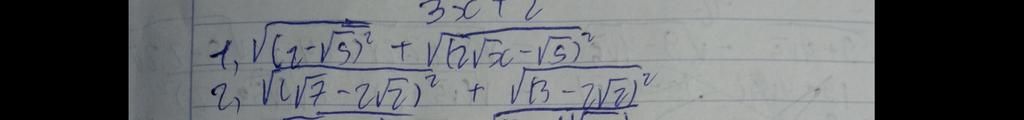 3x + 2
1, √(2-√5)² + √(2√x-√5)²
2, √(√7-2√2)² + √(3-2√2)²